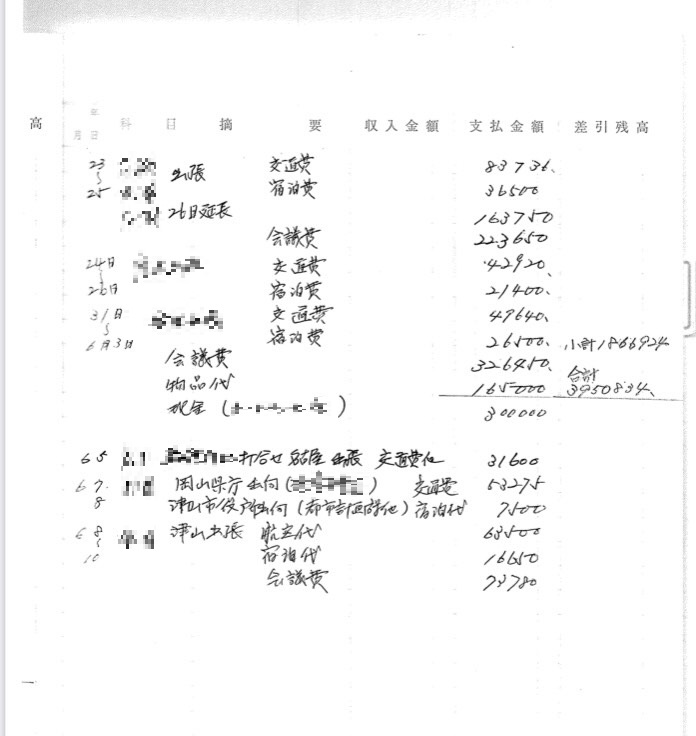 高
年
月日 科目 摘要 収入金額 支払金額 差引残高
23 出張 交通費 83736
25 宿泊費 36500
26日延長 163750
会議費 223650
24日 交通費 42920
26日 宿泊費 21400
31日 交通費 49640
6月3日 宿泊費 26500 小計 1866924
会議費 326450
物品代 165000 合計 3950834
現金 ( ) 300000
6 5 打合せ 名古屋出張 交通費他 31600
6 7 岡山県庁出向 ( ) 交通費 53275
8 津山市役所出向 (都市計画課他) 宿泊代 7500
6 8 津山出張 航空代 63500
10 宿泊代 16650
会議費 73780